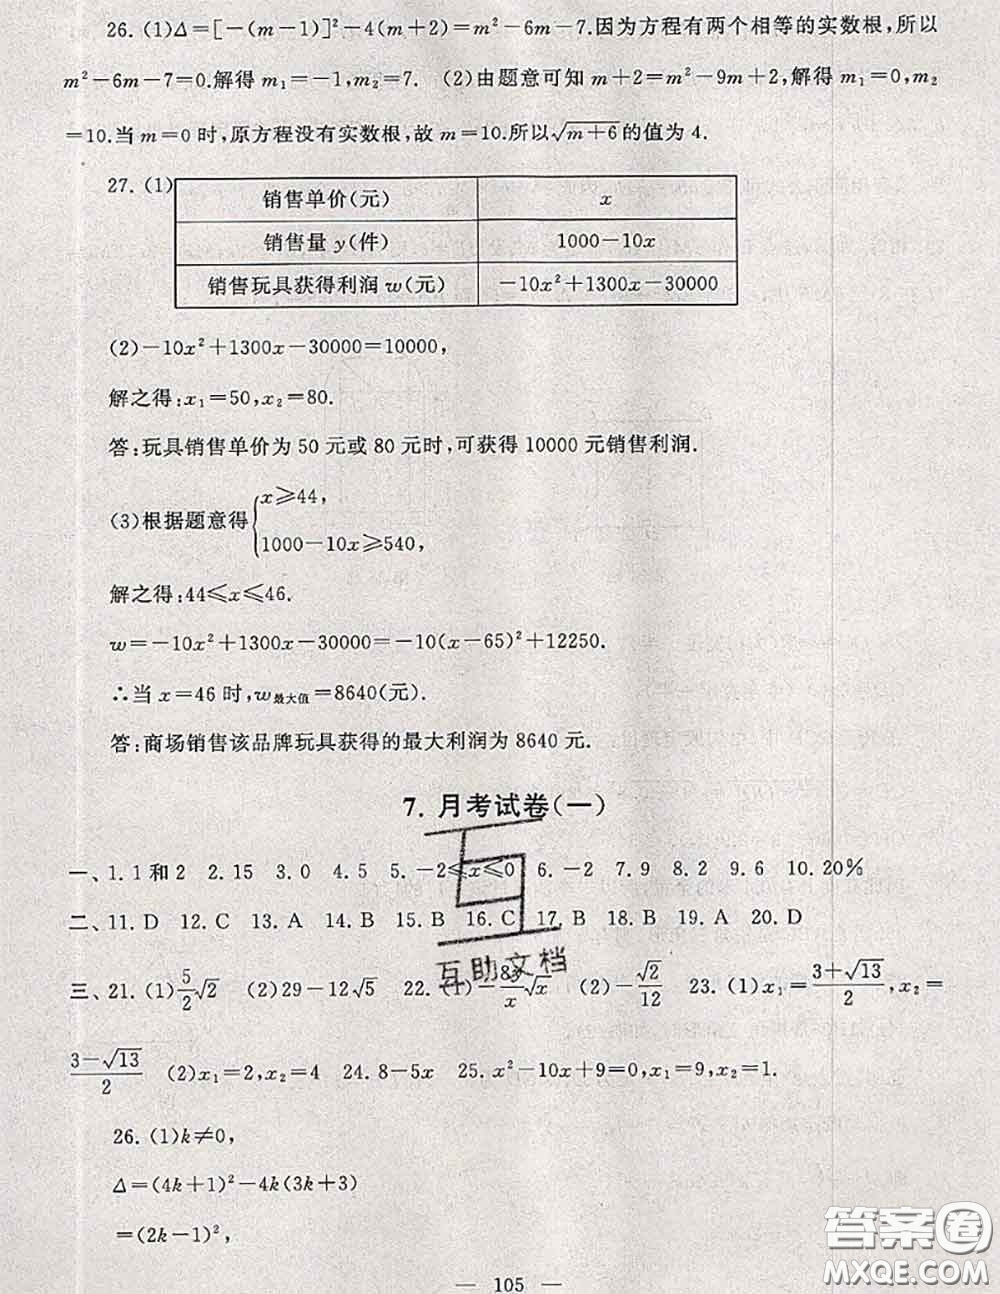 26. (1)Δ=[-(m-1)]²-4(m+2)=m²-6m-7.因为方程有两个相等的实数根,所以
m²-6m-7=0.解得 m₁=-1,m₂=7. (2)由题意可知 m+2=m²-9m+2,解得 m₁=0,m₂
=10.当 m=0 时,原方程没有实数根,故 m=10.所以√(m+6)的值为 4.
27. (1)
销售单价(元) x
销售量 y(件) 1000-10x
销售玩具获得利润 w(元) -10x²+1300x-30000
(2)-10x²+1300x-30000=10000,
解之得:x₁=50,x₂=80.
答:玩具销售单价为 50 元或 80 元时,可获得 10000 元销售利润.
(3)根据题意得{x≥44,
1000-10x≥540,
解之得:44≤x≤46.
w=-10x²+1300x-30000=-10(x-65)²+12250.
∴当 x=46 时,w最大值=8640(元).
答:商场销售该品牌玩具获得的最大利润为 8640 元.
7. 月考试卷(一)
一、1. 1 和 2 2. 15 3. 0 4. 5 5. -2≤x≤0 6. -2 7. 9 8. 2 9. 6 10. 20%
二、11. D 12. C 13. A 14. B 15. B 16. C 17. B 18. B 19. A 20. D
互助文档
三、21. (1)5/2√2 (2)29-12√5 22. (1)-8y/x√x (2)-√2/12 23. (1)x₁=(3+√13)/2,x₂=
(3-√13)/2 (2)x₁=2,x₂=4 24. 8-5x 25. x²-10x+9=0,x₁=9,x₂=1.
26. (1)k≠0,
Δ=(4k+1)²-4k(3k+3)
=(2k-1)²,
答案圈
MXQE.COM
— 105 —